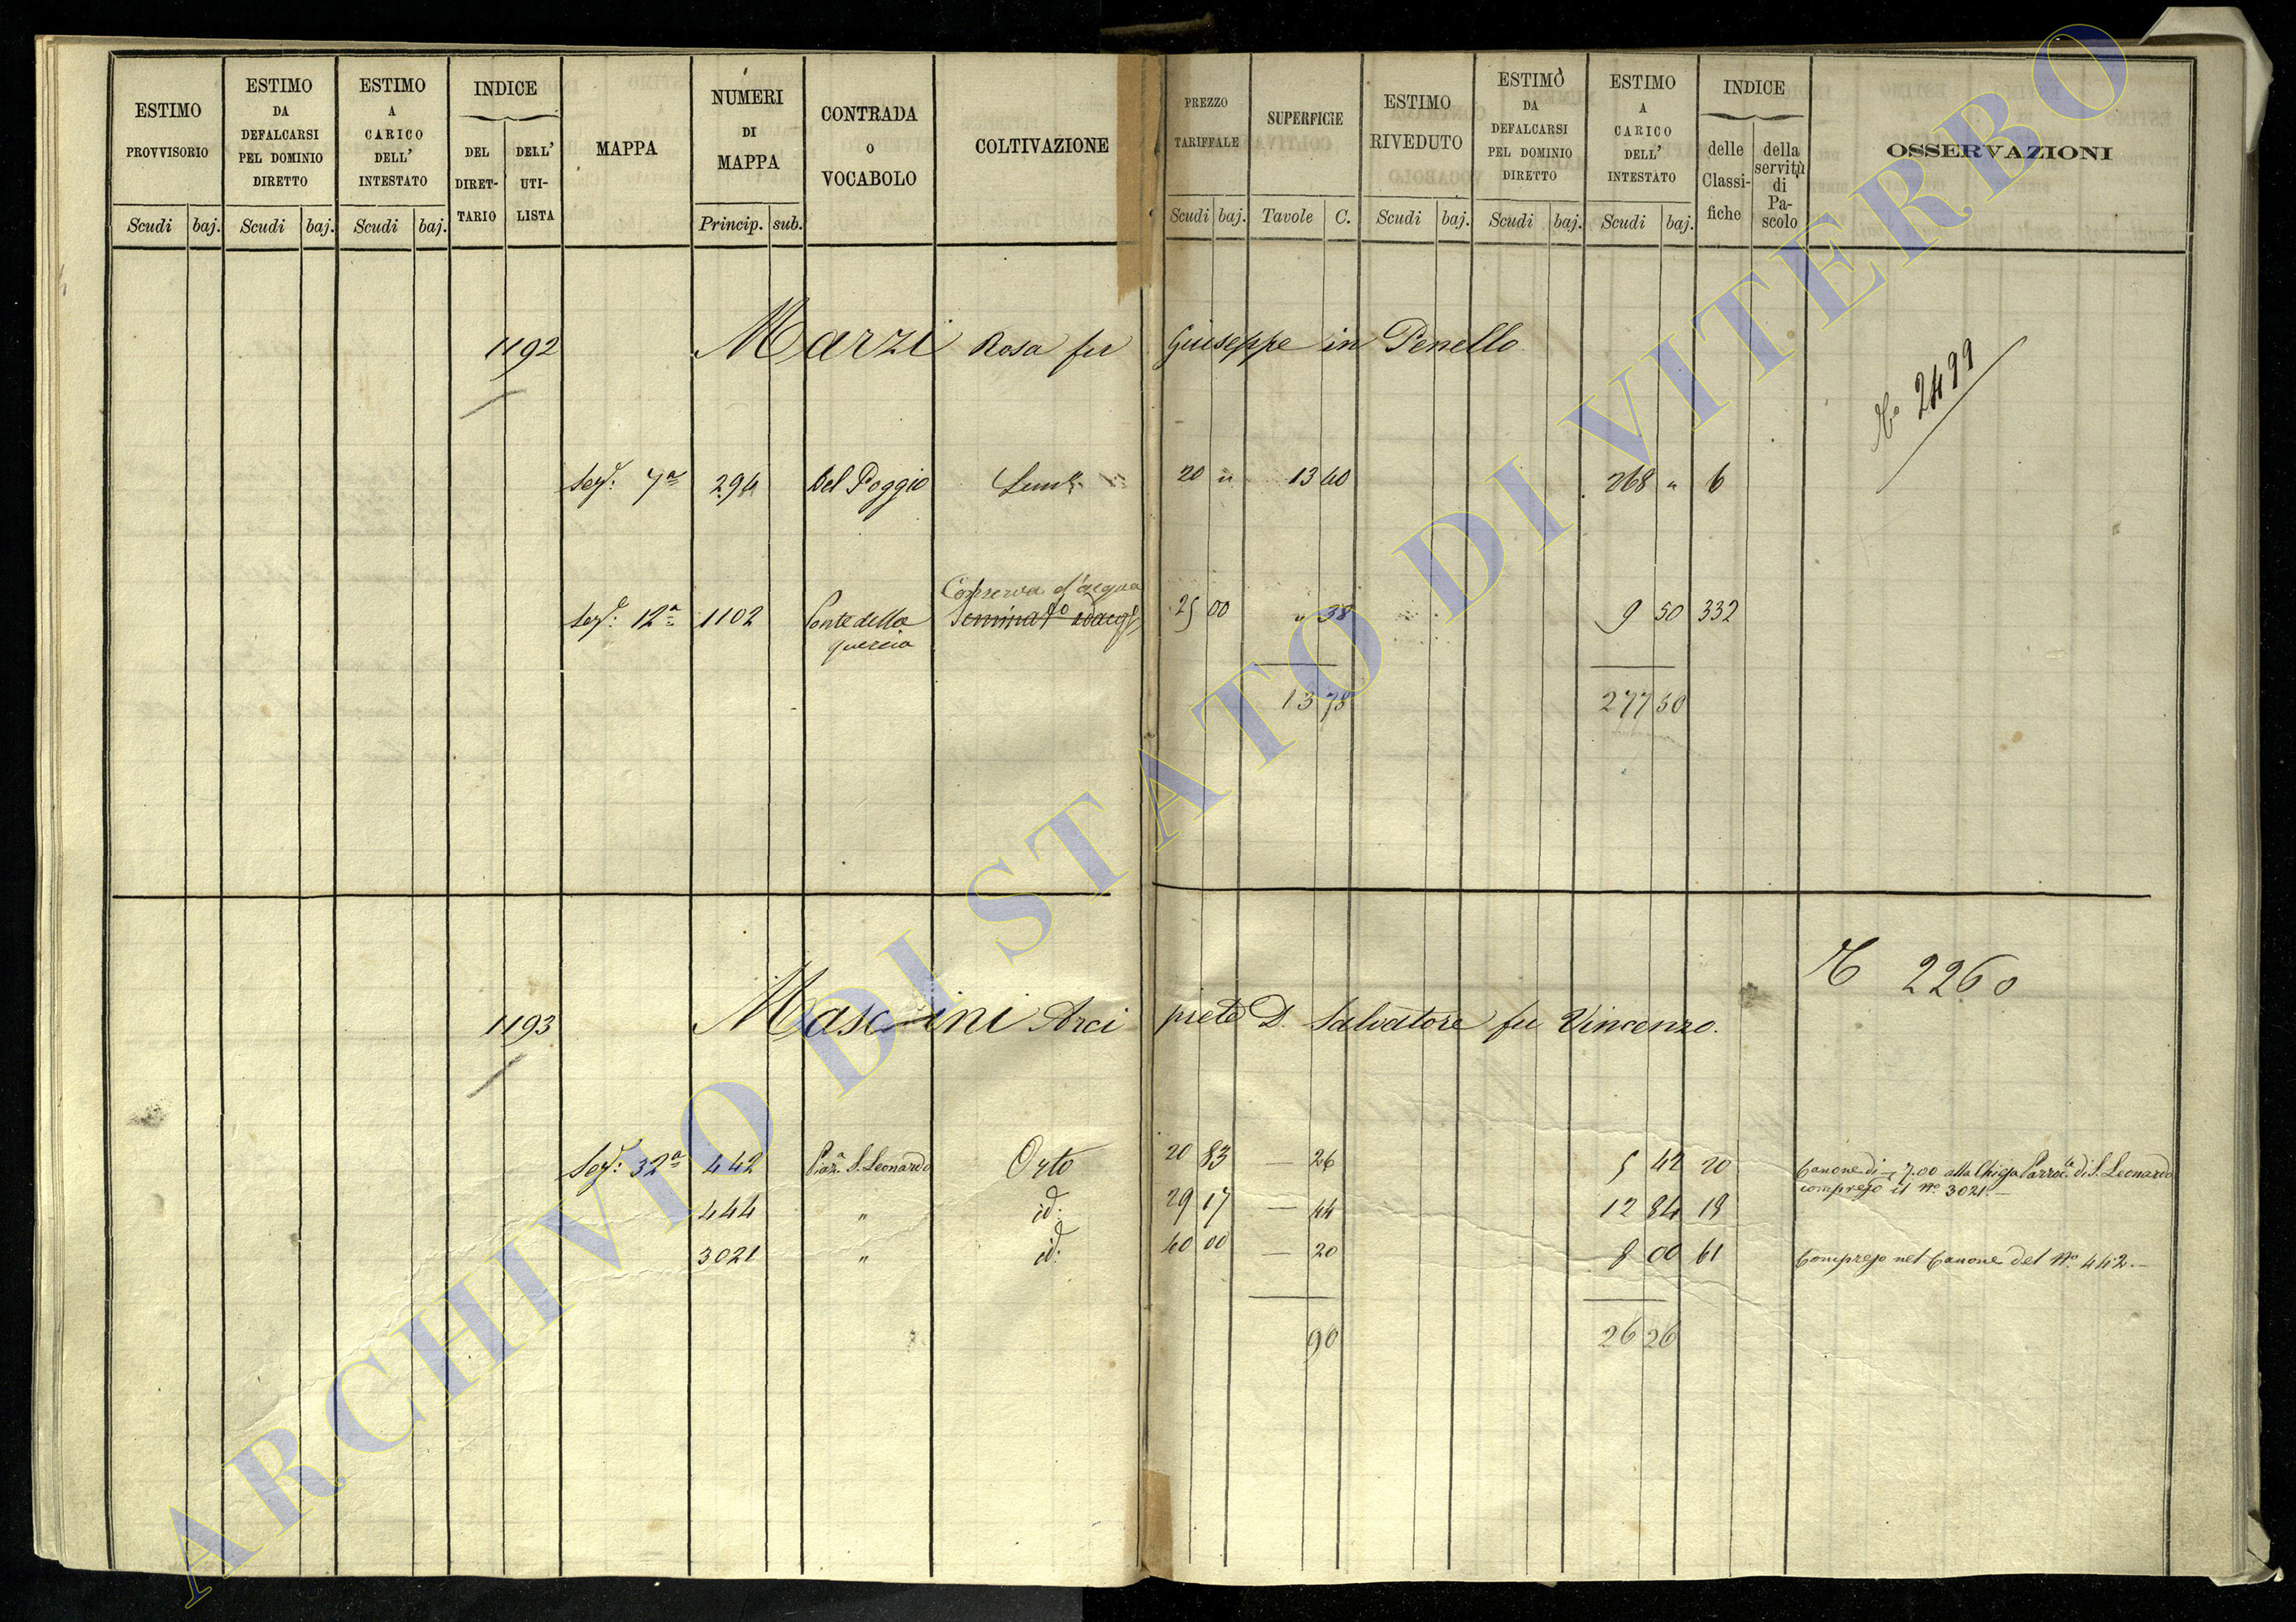 ESTIMO PROVVISORIO Scudi baj.
ESTIMO DA DEFALCARSI PEL DOMINIO DIRETTO Scudi baj.
ESTIMO A CARICO DELL' INTESTATO Scudi baj.
INDICE DEL DIRET- TARIO DELL' UTI- LISTA
MAPPA
NUMERI DI MAPPA Princip. sub.
CONTRADA O VOCABOLO
COLTIVAZIONE
PREZZO TARIFFALE Scudi baj.
SUPERFICIE Tavole C.
ESTIMO RIVEDUTO Scudi baj.
ESTIMO DA DEFALCARSI PEL DOMINIO DIRETTO Scudi baj.
ESTIMO A CARICO DELL' INTESTATO Scudi baj.
INDICE delle Classi- fiche della servitù di Pa- scolo
OSSERVAZIONI
1192 Marzi Rosa fu Giuseppe in Penello
2499
Sez.e 7a 294 Del Poggio 20 " 13 40 268 " 6
Conserva d'acqua
Sez.e 12a 1102 Ponte della Seminato 25 00 " 38 9 50 332
quercia
13 78 277 50
2260
1193 Mascini Arciprete D. Salvatore fu Vincenzo.
Sez.e 32a 442 Piaz.a S. Leonardo Orto 20 83 — 26 5 42 20 Canone di 7.00 alla Chiesa Parroc.le di S. Leonardo
compreso il No. 3021.—
444 " id. 29 17 — 44 12 84 19
3021 " id. 40 00 — 20 8 00 61 Compreso nel Canone del No. 442.—
90 26 26
ARCHIVIO DI STATO DI VITERBO